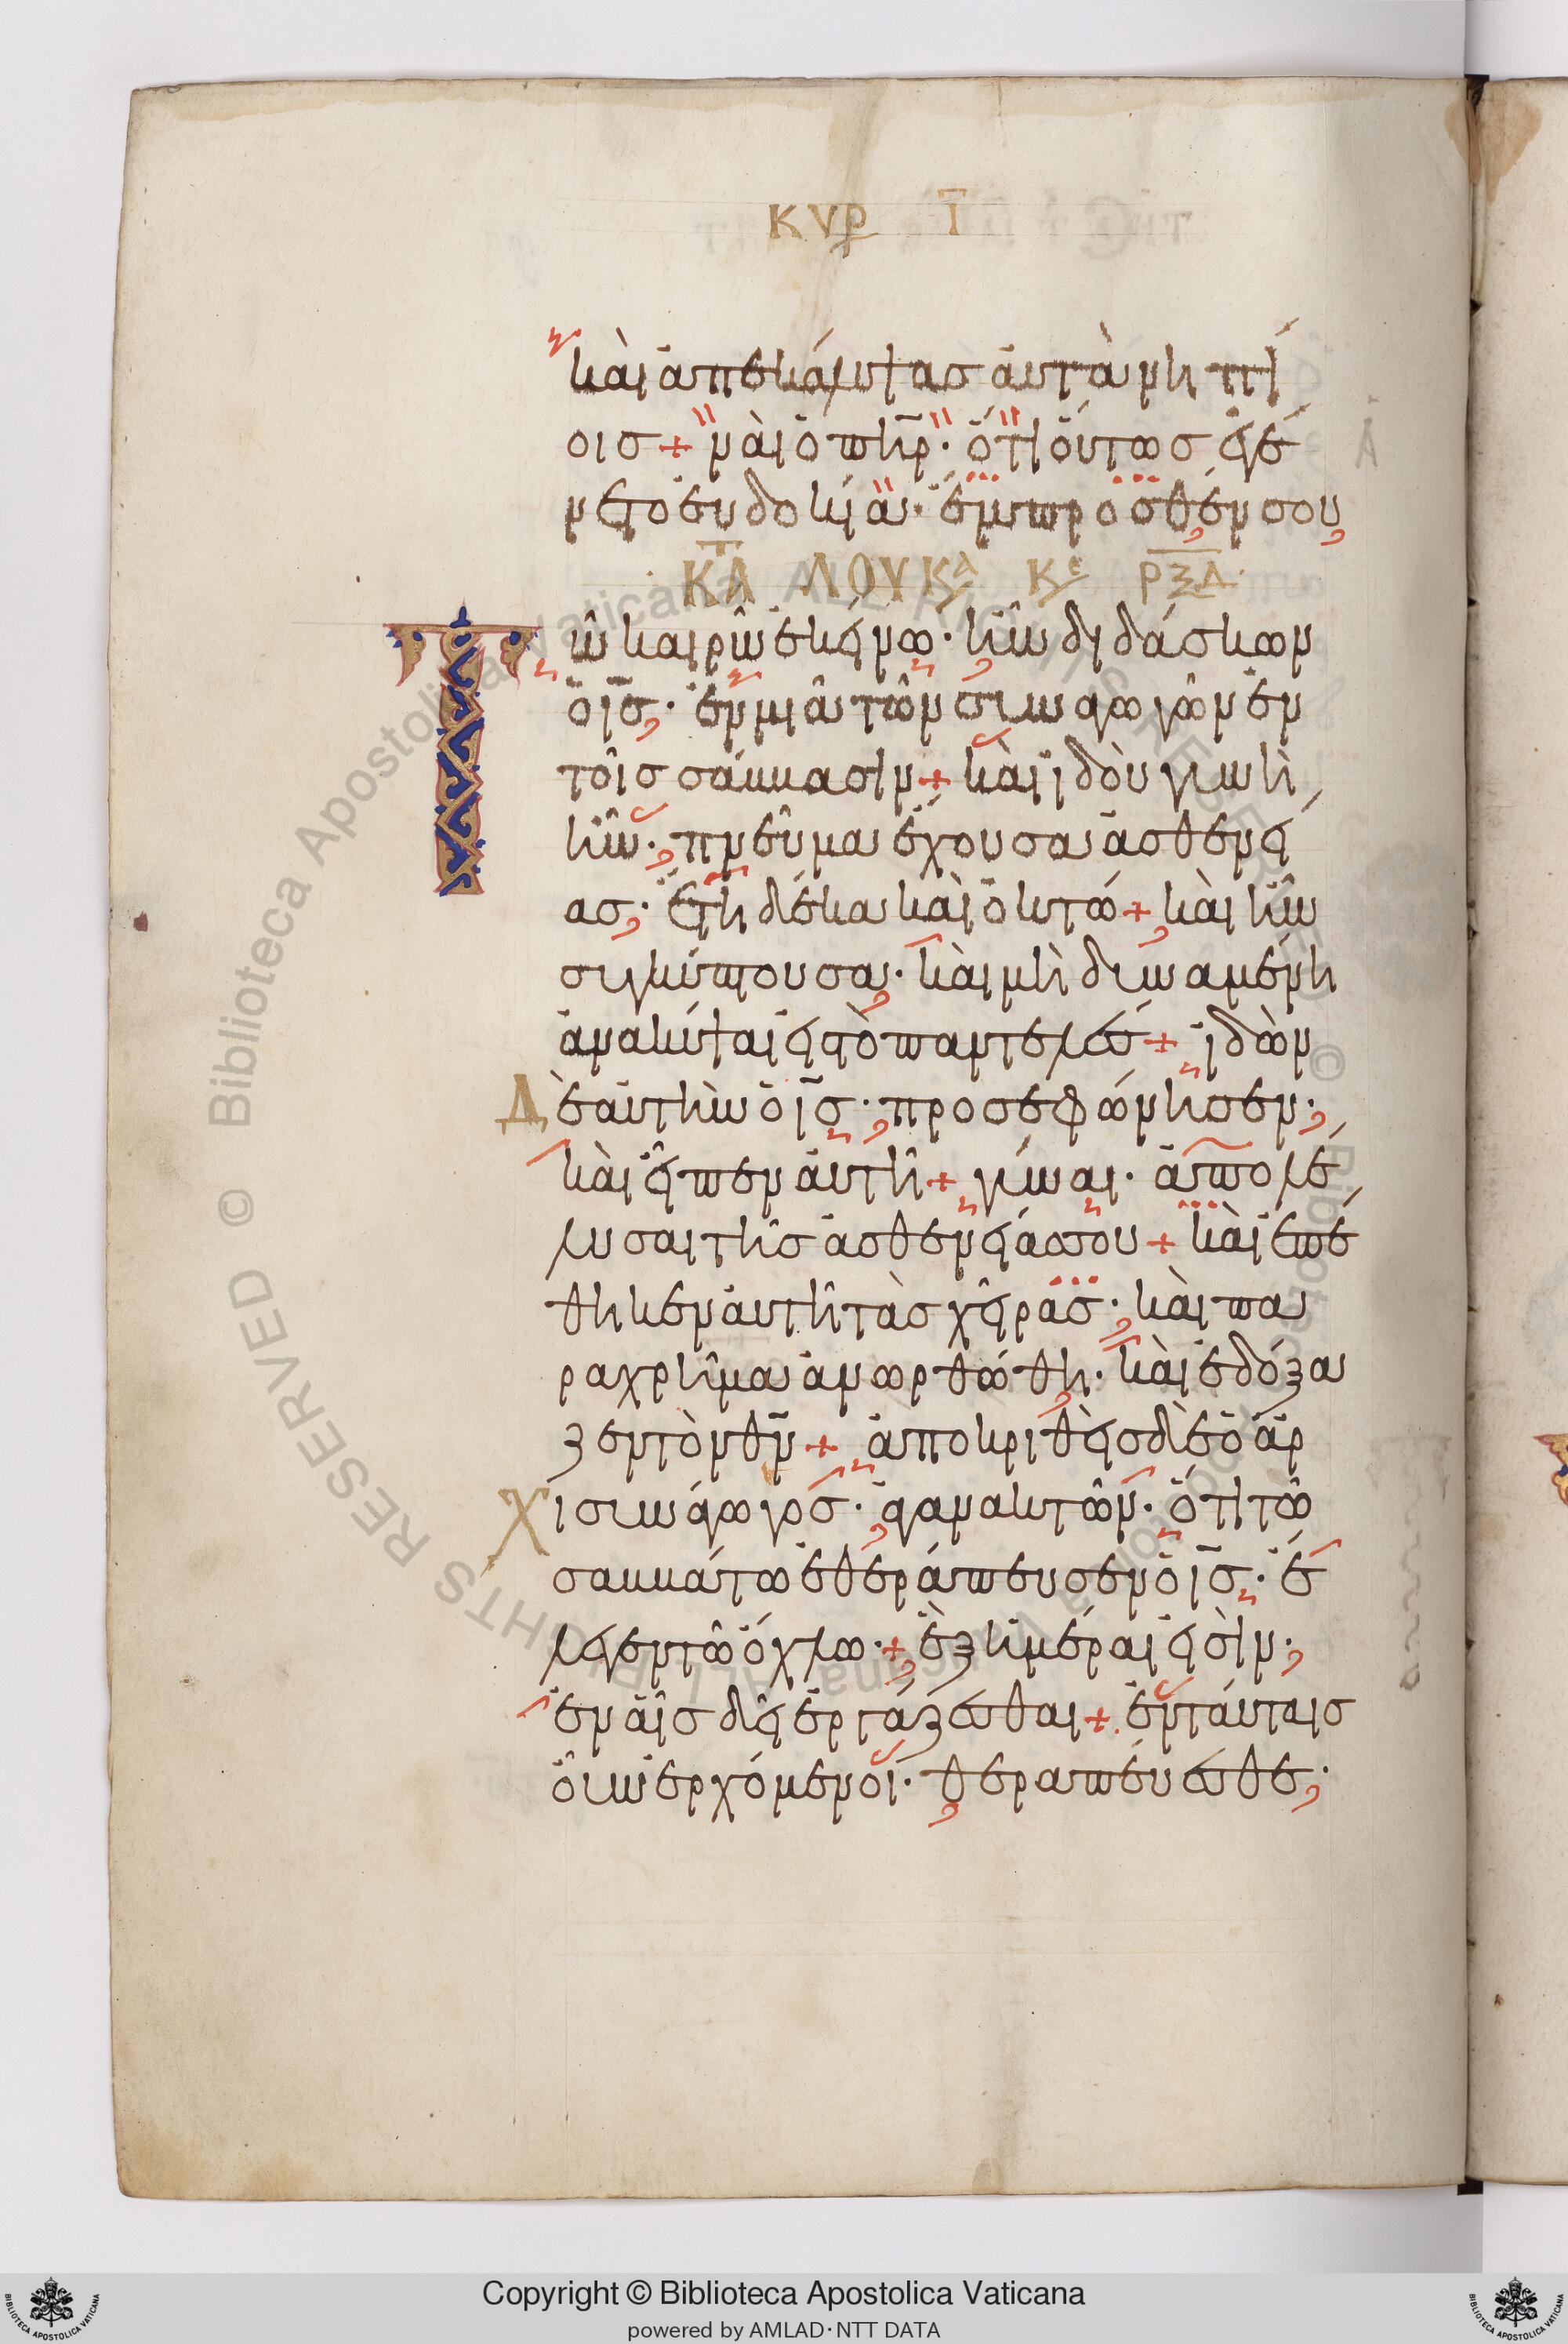 ΚΥΡ Ι
καὶ ἀπεκάλυψας αὐτὰ νηπί
οις + ναὶ ὁ πη̅ρ· ὅτι οὕτως ἐγέ
νετο εὐδοκία· ἔμπροσθέν σου,
ΚΤΑ ΛΟΥΚΑ ΚΕ ΡΞΔ
Τῶ καιρῶ ἐκείνω· ἦν διδάσκων
ὁ ι̅ς̅· ἐν μιᾶ τῶν συναγωγῶν ἐν
τοῖς σάββασιν + καὶ ἰδοὺ γυνὴ
ἦν· πνεῦμα ἔχουσα ἀσθενεί
ας· ἔτη δέκα καὶ ὀκτώ + καὶ ἦν
συγκύπτουσα· καὶ μὴ δυναμένη
ἀνακύψαι εἰς τὸ παντελές + ἰδὼν
Δὲ αὐτὴν ὁ ι̅ς̅· προσεφώνησεν·
καὶ εἶπεν αὐτῆ + γύναι· ἀπολέ
λυσαι τῆς ἀσθενείας σου + καὶ ἐπέ
θηκεν αὐτῆ τὰς χεῖρας· καὶ πα
ραχρῆμα ἀνωρθώθη· καὶ ἐδόξα
ζεν τὸν θ̅ν̅ + ἀποκριθεὶς δὲ ὁ ἀρ
Χισυνάγωγος· ἀγανακτῶν· ὅτι τῶ
σαββάτω ἐθεράπευσεν ὁ ι̅ς̅· ἔ
λεγεν τῶ ὄχλω· + ἓξ ἡμέραι εἰσὶν·
ἐν αἷς δεῖ ἐργάζεσθαι + ἐν ταύταις
οὖν ἐρχόμενοι· θεραπεύεσθε·
Copyright © Biblioteca Apostolica Vaticana
powered by AMLAD·NTT DATA